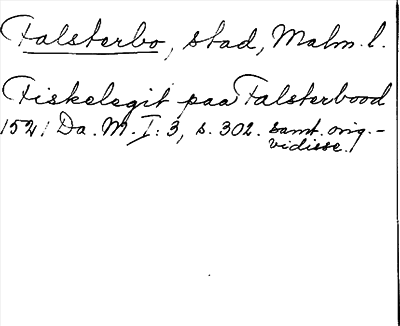 Falsterbo, stad, Malm. l.
Fiskelegit paa Falsterbood
1521 Da. M. I: 3, s. 302. samt. orig.-
vidisse.